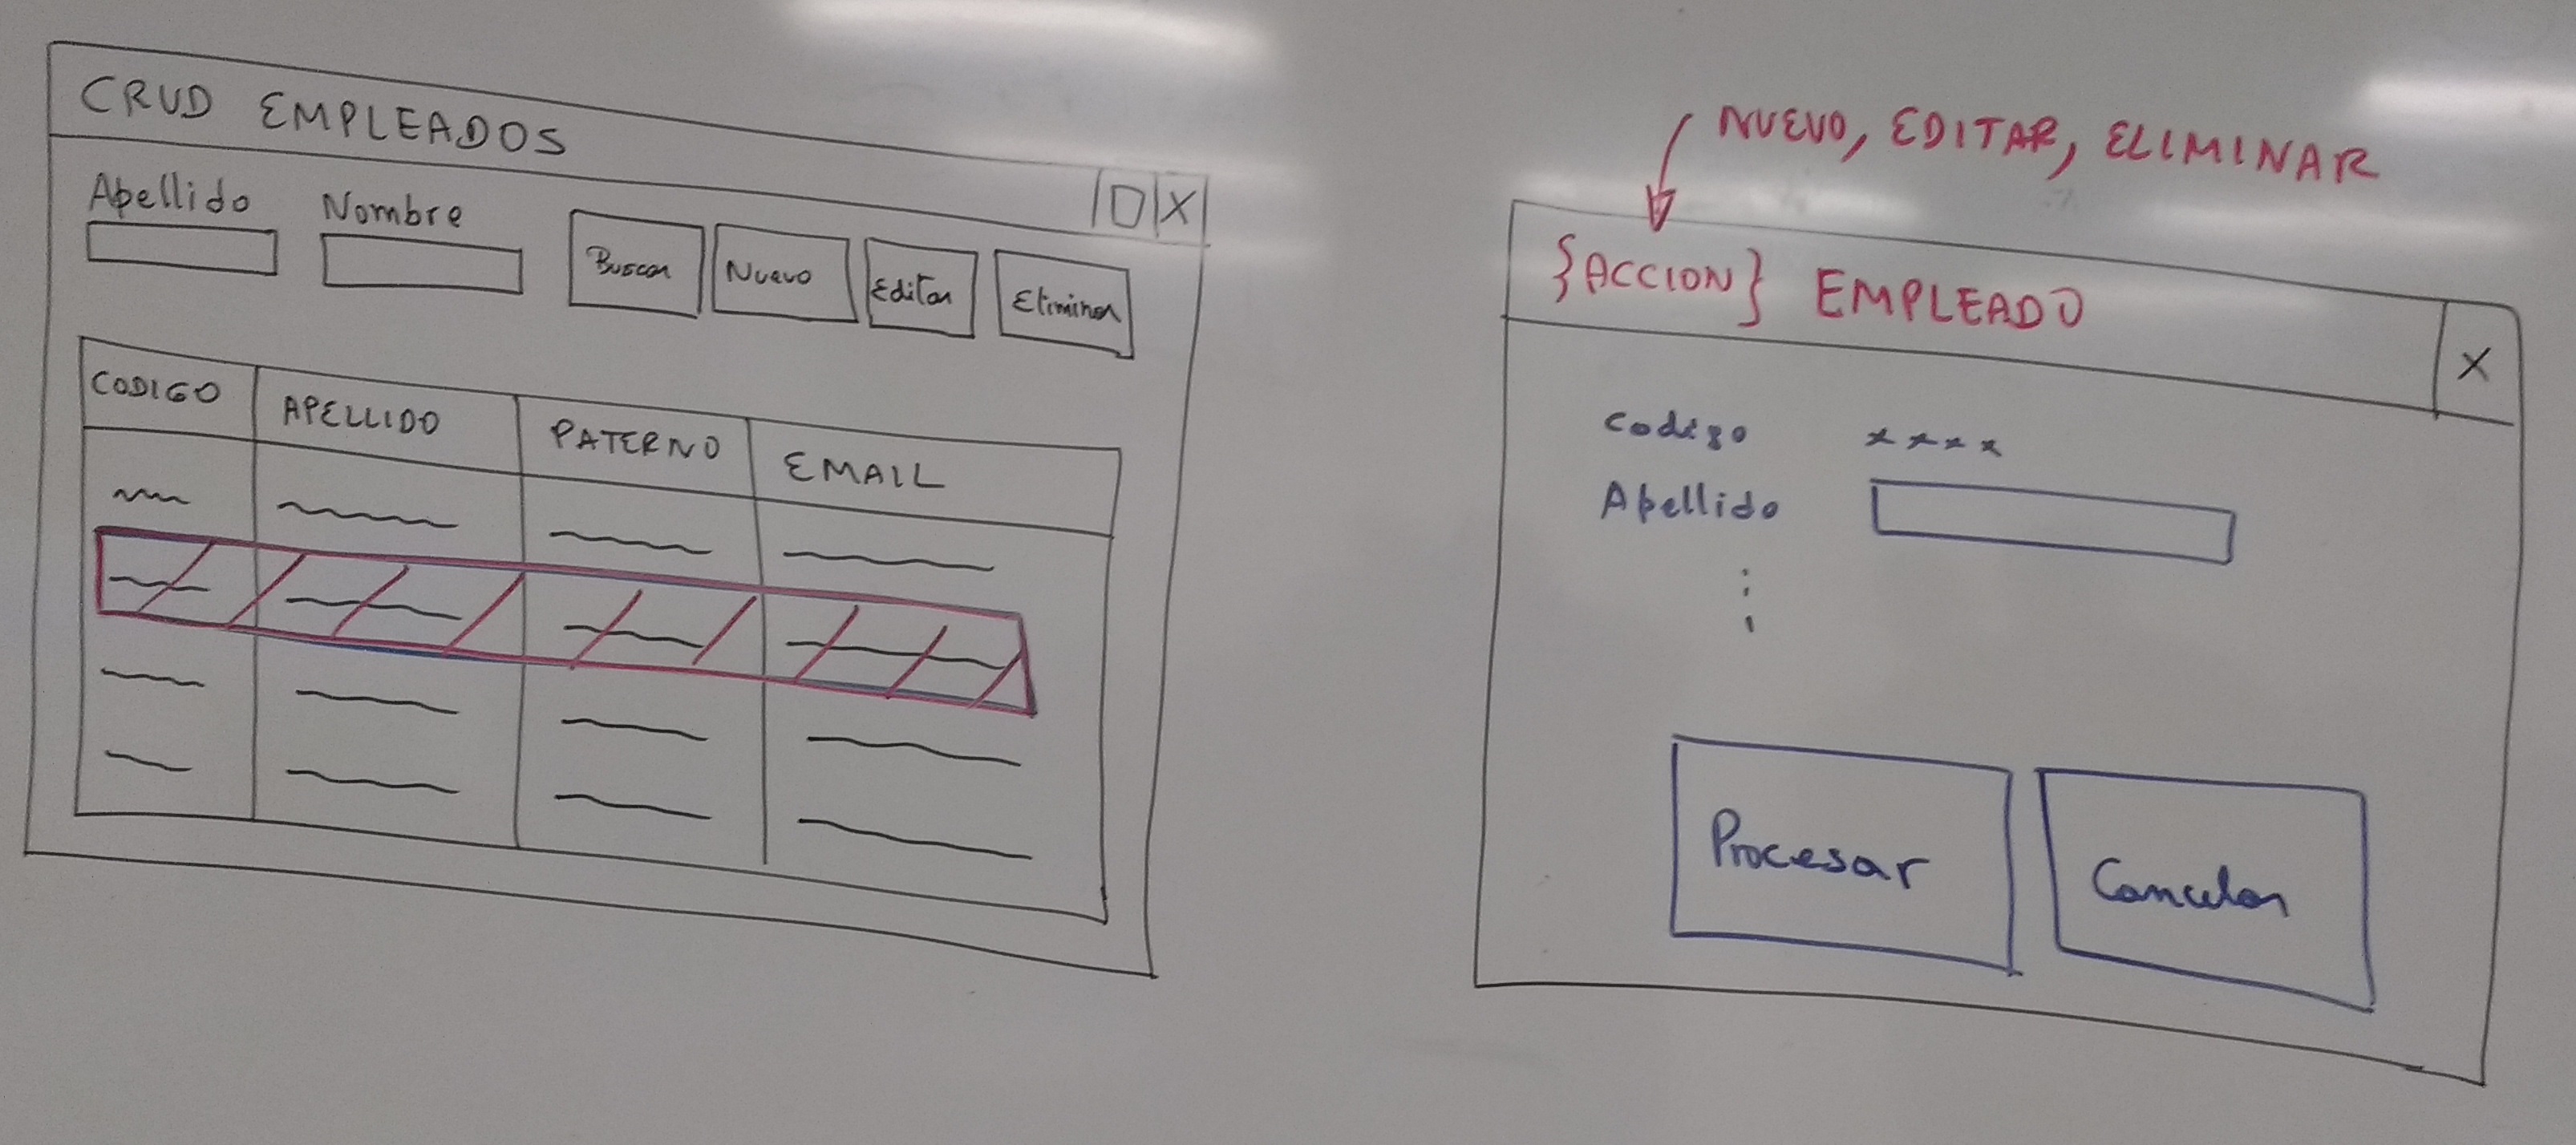 CRUD EMPLEADOS
X
Apellido Nombre
Buscar Nuevo Editar Eliminar
CODIGO APELLIDO PATERNO EMAIL
NUEVO, EDITAR, ELIMINAR
{ACCION} EMPLEADO
X
Codigo ****
Apellido
Procesar Cancelar